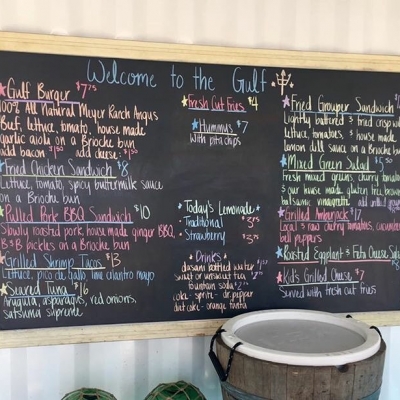 Welcome to the Gulf
Gulf Burger $7.75
100% All Natural Meyer Ranch Angus
Beef, lettuce, tomato, house made
garlic aioli on a Brioche bun
add bacon add cheese
Fried Chicken Sandwich $8
Lettuce, tomato, spicy buttermilk sauce
on a Brioche bun
Pulled Pork BBQ Sandwich $10
Slowly roasted pork, house made ginger BBQ,
B&B pickles on a Brioche bun
Grilled Shrimp Tacos $13
Lettuce, pico de gallo, lime cilantro mayo
Seared Tuna $16
Arugula, asparagus, red onions,
satsuma supreme
Fresh Cut Fries $4
Hummus $7
with pita chips
Today's Lemonade
Traditional $3.75
Strawberry $3.75
Drinks
dasani bottled water
sweet or unsweet tea
fountain soda
coke - sprite - dr. pepper
diet coke - orange fanta
Fried Grouper Sandwich
Lightly battered & fried crispy
lettuce, tomatoes, & house made
lemon dill sauce on a Brioche bun
Mixed Green Salad
Fresh mixed greens, cherry tomatoes
& our house made gluten free
balsamic vinaigrette. add grilled
Grilled Amberjack $17
Local & raw cherry tomatoes, cucumber
bell peppers
Roasted Eggplant & Feta Cheese
Kid's Grilled Cheese, $7
served with fresh cut fries